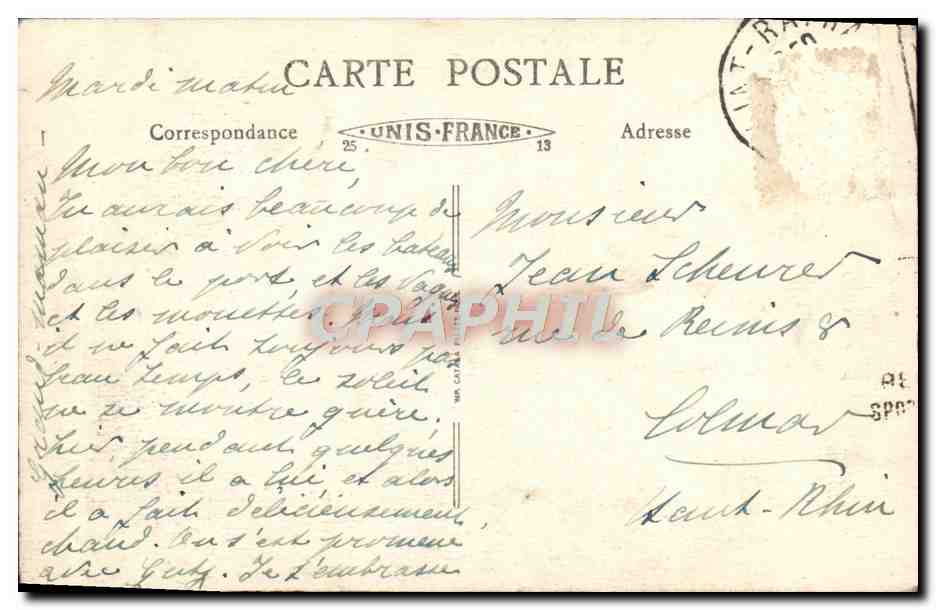 CARTE POSTALE
Correspondance
UNIS-FRANCE
25
13
Adresse
Mardi matin
Mon bon chéri,
Tu aurais beaucoup de
plaisir à voir les bateaux
dans le port, et les vagues
et les mouettes. Mais
il ne fait toujours pas
beau temps, le soleil
ne se montre guère.
hier, pendant quelques
heures il a lui et alors
il a fait délicieusement
chaud. On s'est promené
avec. Je t'embrasse
Grand-maman
Monsieur
Jean Scheurer
rue de Reims 8
Colmar
Haut-Rhin
CPAPHIL